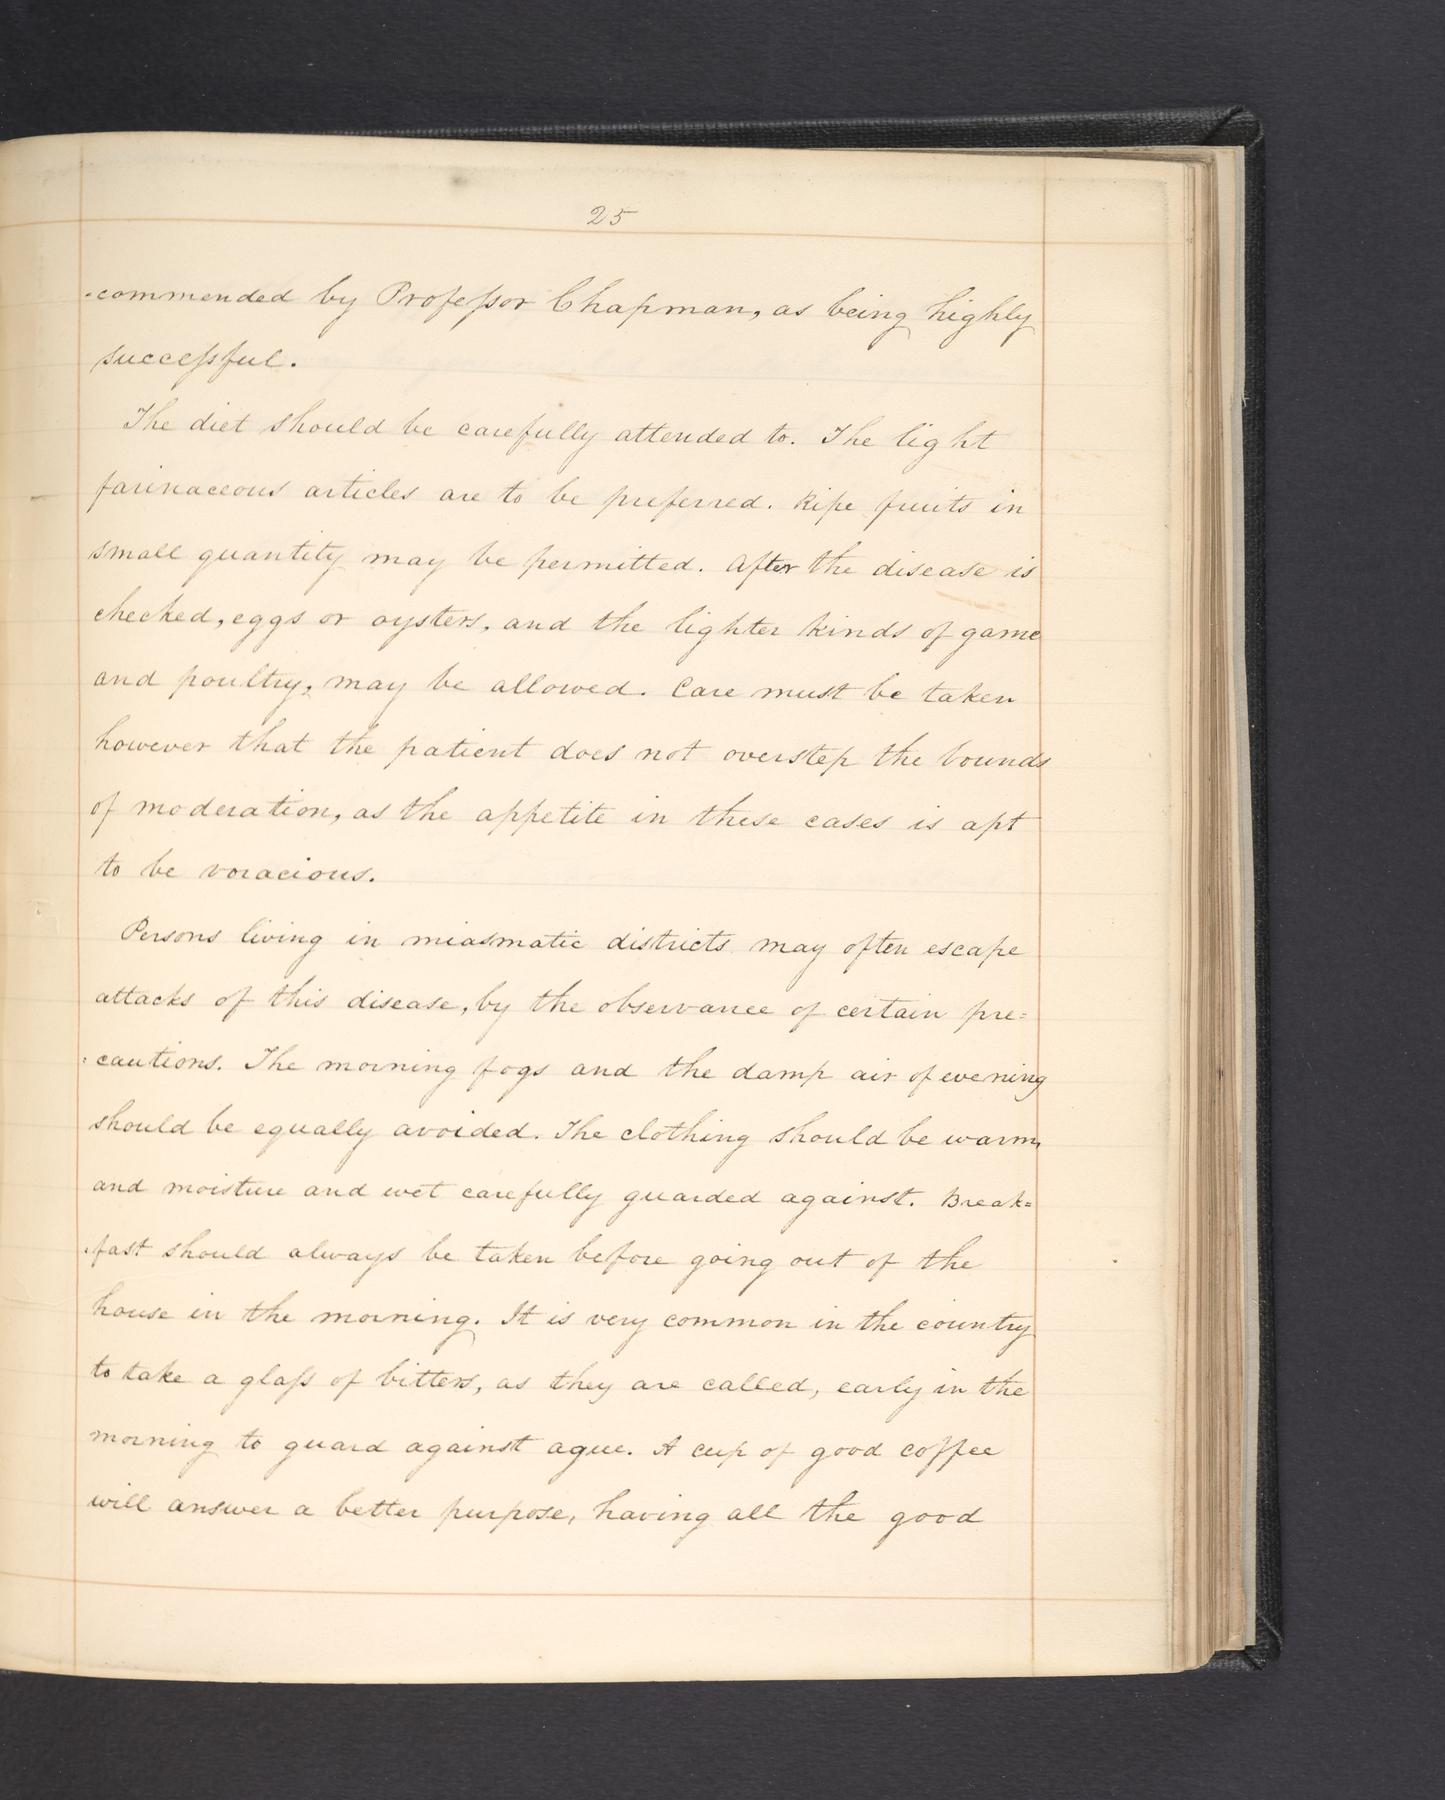 25
-commended by Professor Chapman, as being highly
successful.
The diet should be carefully attended to. The light
farinaceous articles are to be preferred. Ripe fruits in
small quantity may be permitted. After the disease is
checked, eggs or oysters, and the lighter kinds of game
and poultry, may be allowed. Care must be taken
however that the patient does not overstep the bounds
of moderation, as the appetite in these cases is apt
to be voracious.
Persons living in miasmatic districts may often escape
attacks of this disease, by the observance of certain pre=
=cautions. The morning fogs and the damp air of evening
should be equally avoided. The clothing should be warm,
and moisture and wet carefully guarded against. Break=
-fast should always be taken before going out of the
house in the morning. It is very common in the country
to take a glass of bitters, as they are called, early in the
morning to guard against ague. A cup of good coffee
will answer a better purpose, having all the good